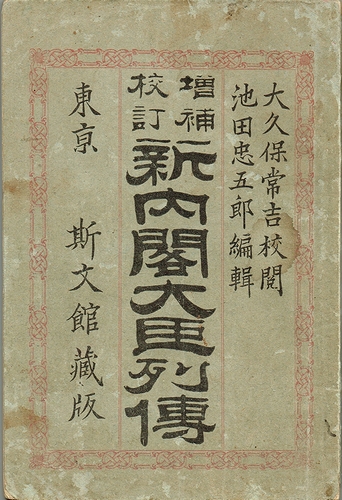 大久保常吉校閲
池田忠五郎編輯
増補
校訂
新内閣大臣列傳
東京 斯文館藏版